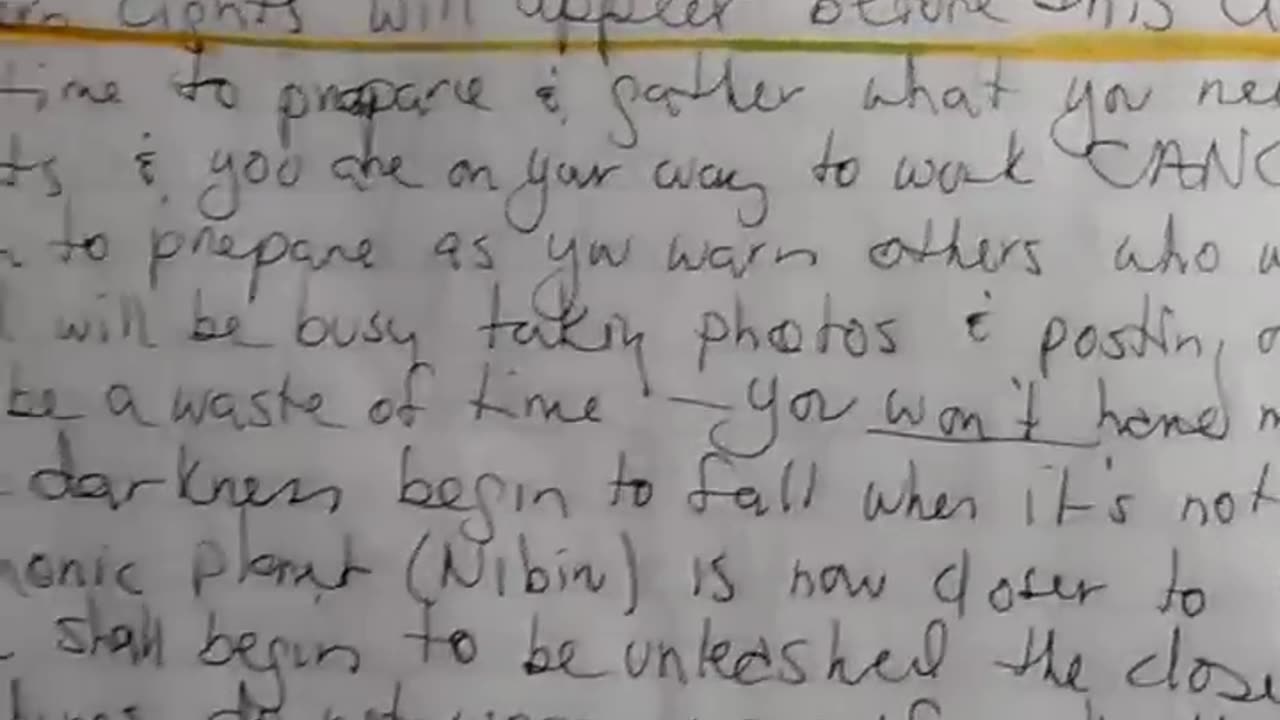 Lights will appear before this
time to prepare & gather what you nee
ts & you are on your way to work CANC
to prepare as you warn others who w
will be busy taking photos & posting o
be a waste of time - you won't have m
darkness begin to fall when it's not
onic planet (Nibiru) is now closer to
shall begin to be unleashed the close